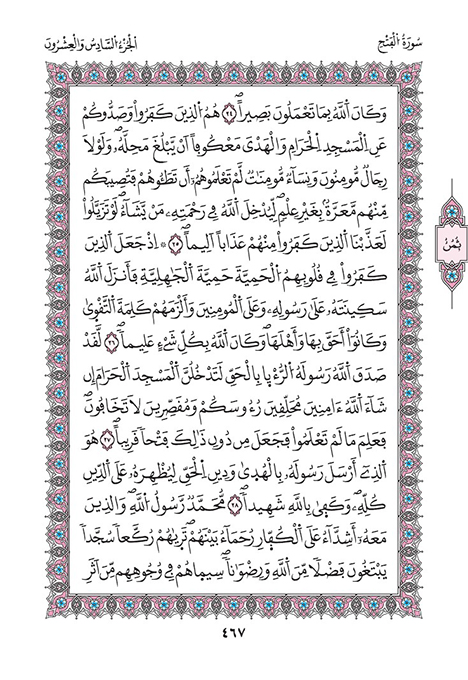 سُورَةُ الْفَتْحِ
الْجُزْءُ السَّادِسُ وَالْعِشْرُونَ
وَكَانَ اَللَّهُ بِمَا تَعْمَلُونَ بَصِيراًۖ ٢٤ هُمُ اُلذِينَ كَفَرُواْ وَصَدُّوكُمْ
عَنِ اِلْمَسْجِدِ اِلْحَرَامِ وَالْهَدْيَ مَعْكُوفاً اَنْ يَّبْلُغَ مَحِلَّهُۥۖ وَلَوْلَا
رِجَالٞ مُّومِنُونَ وَنِسَآءٞ مُّومِنَٰتٞ لَّمْ تَعْلَمُوهُمُۥٓ أَن تَطَـُٔوهُمْ فَتُصِيبَكُم
مِّنْهُم مَّعَرَّةُۢ بِغَيْرِ عِلْمٖ لِّيُدْخِلَ اَللَّهُ فِے رَحْمَتِهِۦ مَنْ يَّشَآءُۖ لَوْ تَزَيَّلُواْ
لَعَذَّبْنَا اَلذِينَ كَفَرُواْ مِنْهُمْ عَذَاباً اَلِيماًۖ ٢٥ ۞ اِذْ جَعَلَ اَلذِينَ
كَفَرُواْ فِے قُلُوبِهِمُ اُلْحَمِيَّةَ حَمِيَّةَ اَلْجَٰهِلِيَّةِ فَأَنزَلَ اَللَّهُ
سَكِينَتَهُۥ عَلَىٰ رَسُولِهِۦ وَعَلَى اَلْمُومِنِينَ وَأَلْزَمَهُمْ كَلِمَةَ اَلتَّقْوَىٰ
وَكَانُوٓاْ أَحَقَّ بِهَا وَأَهْلَهَاۖ وَكَانَ اَللَّهُ بِكُلِّ شَےْءٍ عَلِيماًۖ ٢٦ لَّقَدْ
صَدَقَ اَللَّهُ رَسُولَهُ اُلرُّءْي۪ا بِالْحَقِّ لَتَدْخُلُنَّ اَلْمَسْجِدَ اَلْحَرَامَ إِن
شَآءَ اَللَّهُ ءَامِنِينَ مُحَلِّقِينَ رُءُوسَكُمْ وَمُقَصِّرِينَ لَا تَخَافُونَۖ
فَعَلِمَ مَا لَمْ تَعْلَمُواْ فَجَعَلَ مِن دُونِ ذَٰلِكَ فَتْحاً قَرِيباًۖ ٢٧ هُوَ
اَلذِےٓ أَرْسَلَ رَسُولَهُۥ بِالْهُدَىٰ وَدِينِ اِلْحَقِّ لِيُظْهِرَهُۥ عَلَى اَلدِّينِ
كُلِّهِۦۖ وَكَفَىٰ بِاللَّهِ شَهِيداًۖ ٢٨ مُّحَمَّدٞ رَّسُولُ اُللَّهِۖ وَالذِينَ
مَعَهُۥٓ أَشِدَّآءُ عَلَى اَلْكُفّ۪ارِ رُحَمَآءُ بَيْنَهُمْۖ تَر۪يٰهُمْ رُكَّعاً سُجَّداً
يَبْتَغُونَ فَضْلاً مِّنَ اَللَّهِ وَرِضْوَٰناًۖ سِيم۪اهُمْ فِے وُجُوهِهِم مِّنَ اَثَرِ
ثُمُنُ
٤٦٧